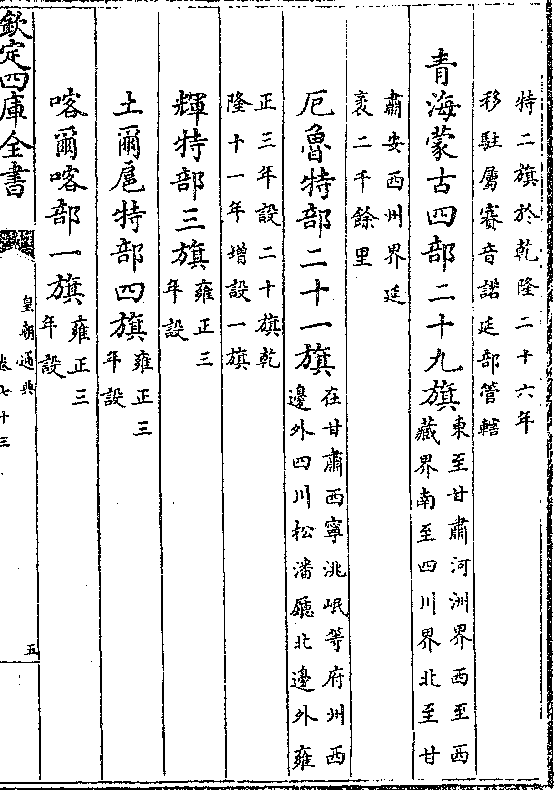 特二旗於乾隆二十六年
移駐屬賽音諾延部管轄
青海蒙古四部二十九旗東至甘肅河洲界西至西
藏界南至四川界北至甘
肅安西州界延
袤二千餘里
厄魯特部二十一旗在甘肅西寧洮岷等府州西
邊外四川松潘廳北邊外雍
正三年設二十旗乾
隆十一年增設一旗
輝特部三旗雍正三
年設
土爾扈特部四旗雍正三
年設
喀爾喀部一旗雍正三
年設
欽定四庫全書
皇朝通典
卷七十三
五